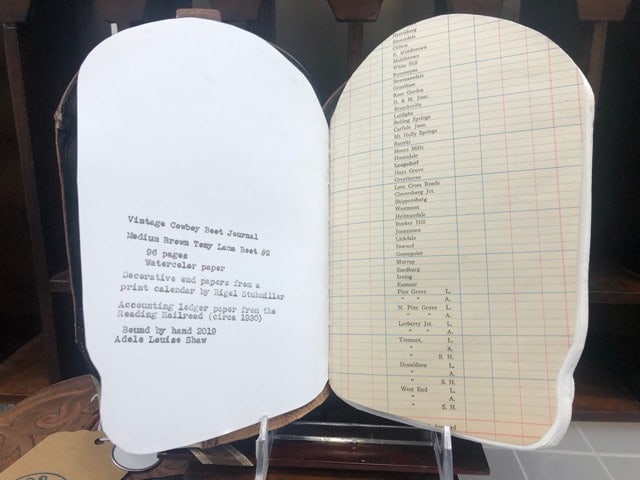 Vintage Cowboy Boot Journal
Medium Brown Tony Lama Boot #2
96 pages
Watercolor paper
Decorative end papers from a
print calendar by Rigel Stuhmiller
Accounting ledger paper from the
Reading Railroad (circa 1930)
Bound by hand 2019
Adele Louise Shaw
Harrisburg
Beaverdale
Clifton
S. Middletown
Middletown
White Hill
Bowmansdale
Grantham
Rose Garden
D. & M. Junc.
Brandtsville
Leidigh
Boiling Springs
Carlisle Junc.
Mt. Holly Springs
Barnitz
Moore Mills
Huntsdale
Longsdorf
Hays Grove
Greythorne
Lees Cross Roads
Cleversburg Jct.
Shippensburg
Westmont
Heilmandale
Bunker Hill
Jonestown
Lickdale
Inwood
Greenpoint
Murray
Suedburg
Irving
Exmoor
Pine Grove L.
" " A.
N. Pine Grove L.
" " A.
Lorberry Jct. L.
" " A.
Tremont, L.
" A.
" S. H.
Donaldson L.
" A.
" S. H.
West End L.
" A.
" S. H.